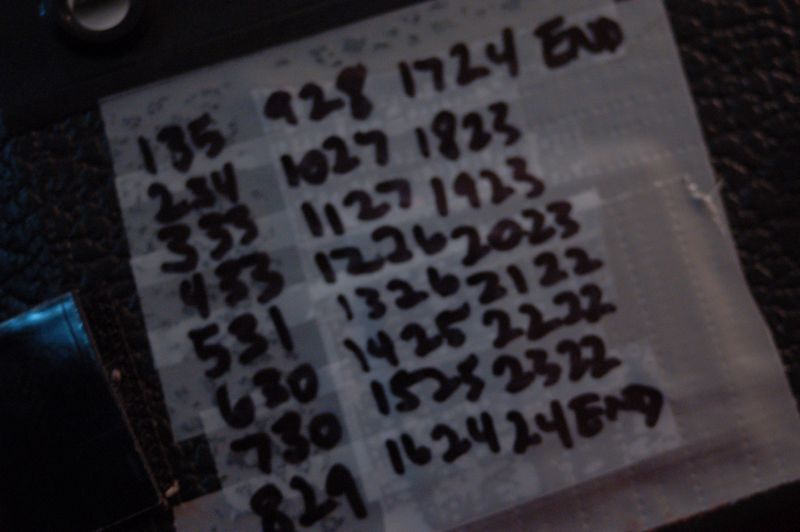 135 928 1724 END
234 1027 1823
333 1127 1923
433 1226 2023
531 1326 2122
630 1425 2222
730 1525 2322
829 1624 24END